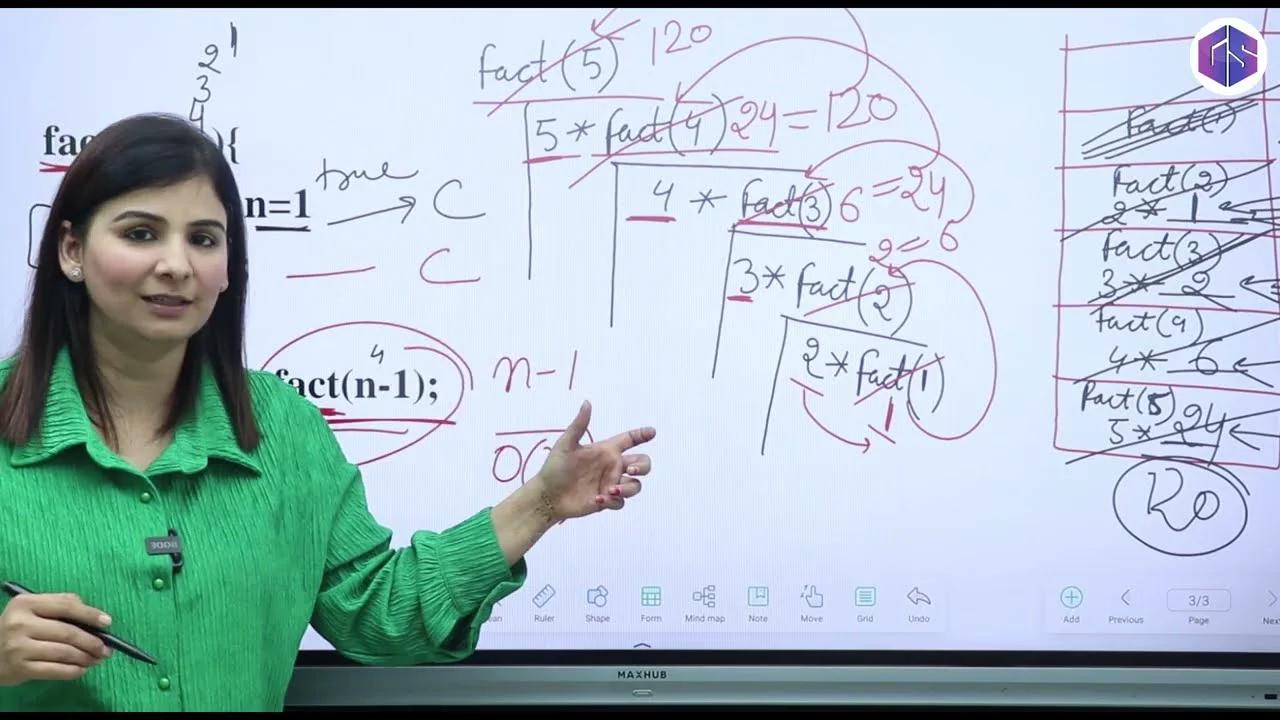 2 1
3
4
fact(5) 120
5 * fact(4) 24 = 120
4 * fact(3) 6 = 24
2 = 6
3 * fact(2)
2 * fact(1)
1
n=1 true C
C
4
fact(n-1);
n-1
Fact(1)
Fact(2)
2 * 1
Fact(3)
3 * 2
Fact(4)
4 * 6
Fact(5)
5 * 24
Ruler Shape Form Mind map Note Move Grid Undo
Add Previous 3/3 Page
MAXHUB